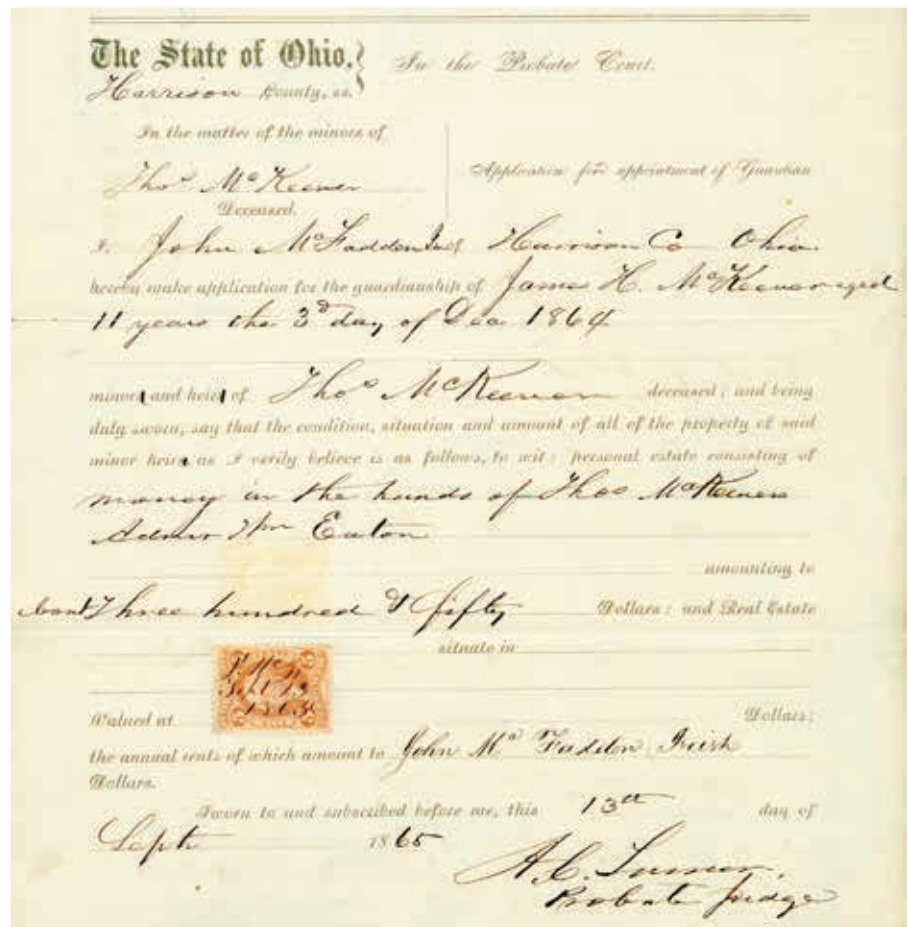 The State of Ohio,
Harrison County, ss.
In the Probate Court.
In the matter of the minors of
Thos McKeever
Deceased.
Application for appointment of Guardian
I, John McFadden Harrison Co Ohio
hereby make application for the guardianship of James H. McKeever aged
11 years the 3d day of Dec 1864
minor and heir of Thos McKeever deceased; and being
duly sworn, say that the condition, situation and amount of all of the property of said
minor heir as I verily believe is as follows, to wit: personal estate consisting of
money in the hands of Thos McKeevers
Admr Wm Eaton
amounting to
bout Three hundred & fifty Dollars: and Real Estate
situate in
Sept 13
Valued at Dollars:
the annual rents of which amount to John Mc Fadden Irish
Dollars.
Sworn to and subscribed before me, this 13th day of
Sept 1865
A. C. Turner,
Probate Judge